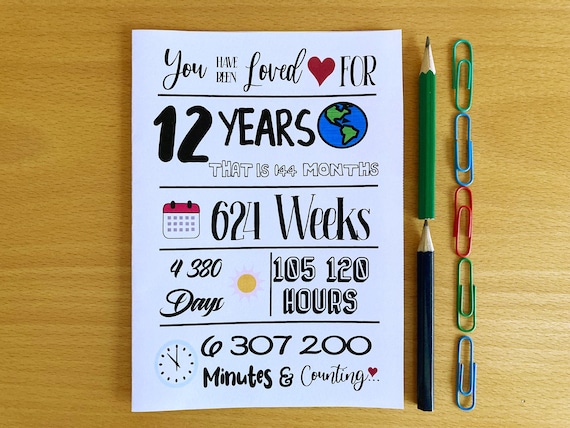 You HAVE BEEN Loved FOR
12 YEARS
THAT IS 144 MONTHS
624 Weeks
4 380 Days
105 120 HOURS
6 307 200
Minutes & Counting...